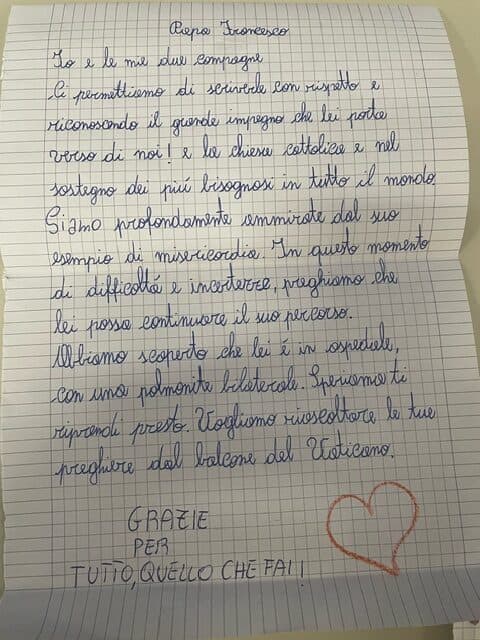 Papa Francesco
Io e le mie due compagne
Ci permettiamo di scriverle con rispetto e
riconoscendo il grande impegno che lei porta
verso di noi! e la chiesa cattolica e nel
sostegno dei piú bisognosi in tutto il mondo.
Siamo profondamente ammirate dal suo
esempio di misericordia. In questo momento
di difficoltá e incertezze, preghiamo che
lei possa continuare il suo percorso.
Abbiamo scoperto che lei é in ospedale,
con una polmonite bilaterale. Speriamo ti
riprendi presto. Vogliamo riascoltare le tue
preghiere dal balcone del Vaticano.
GRAZIE
PER
TUTTO, QUELLO CHE FAI!